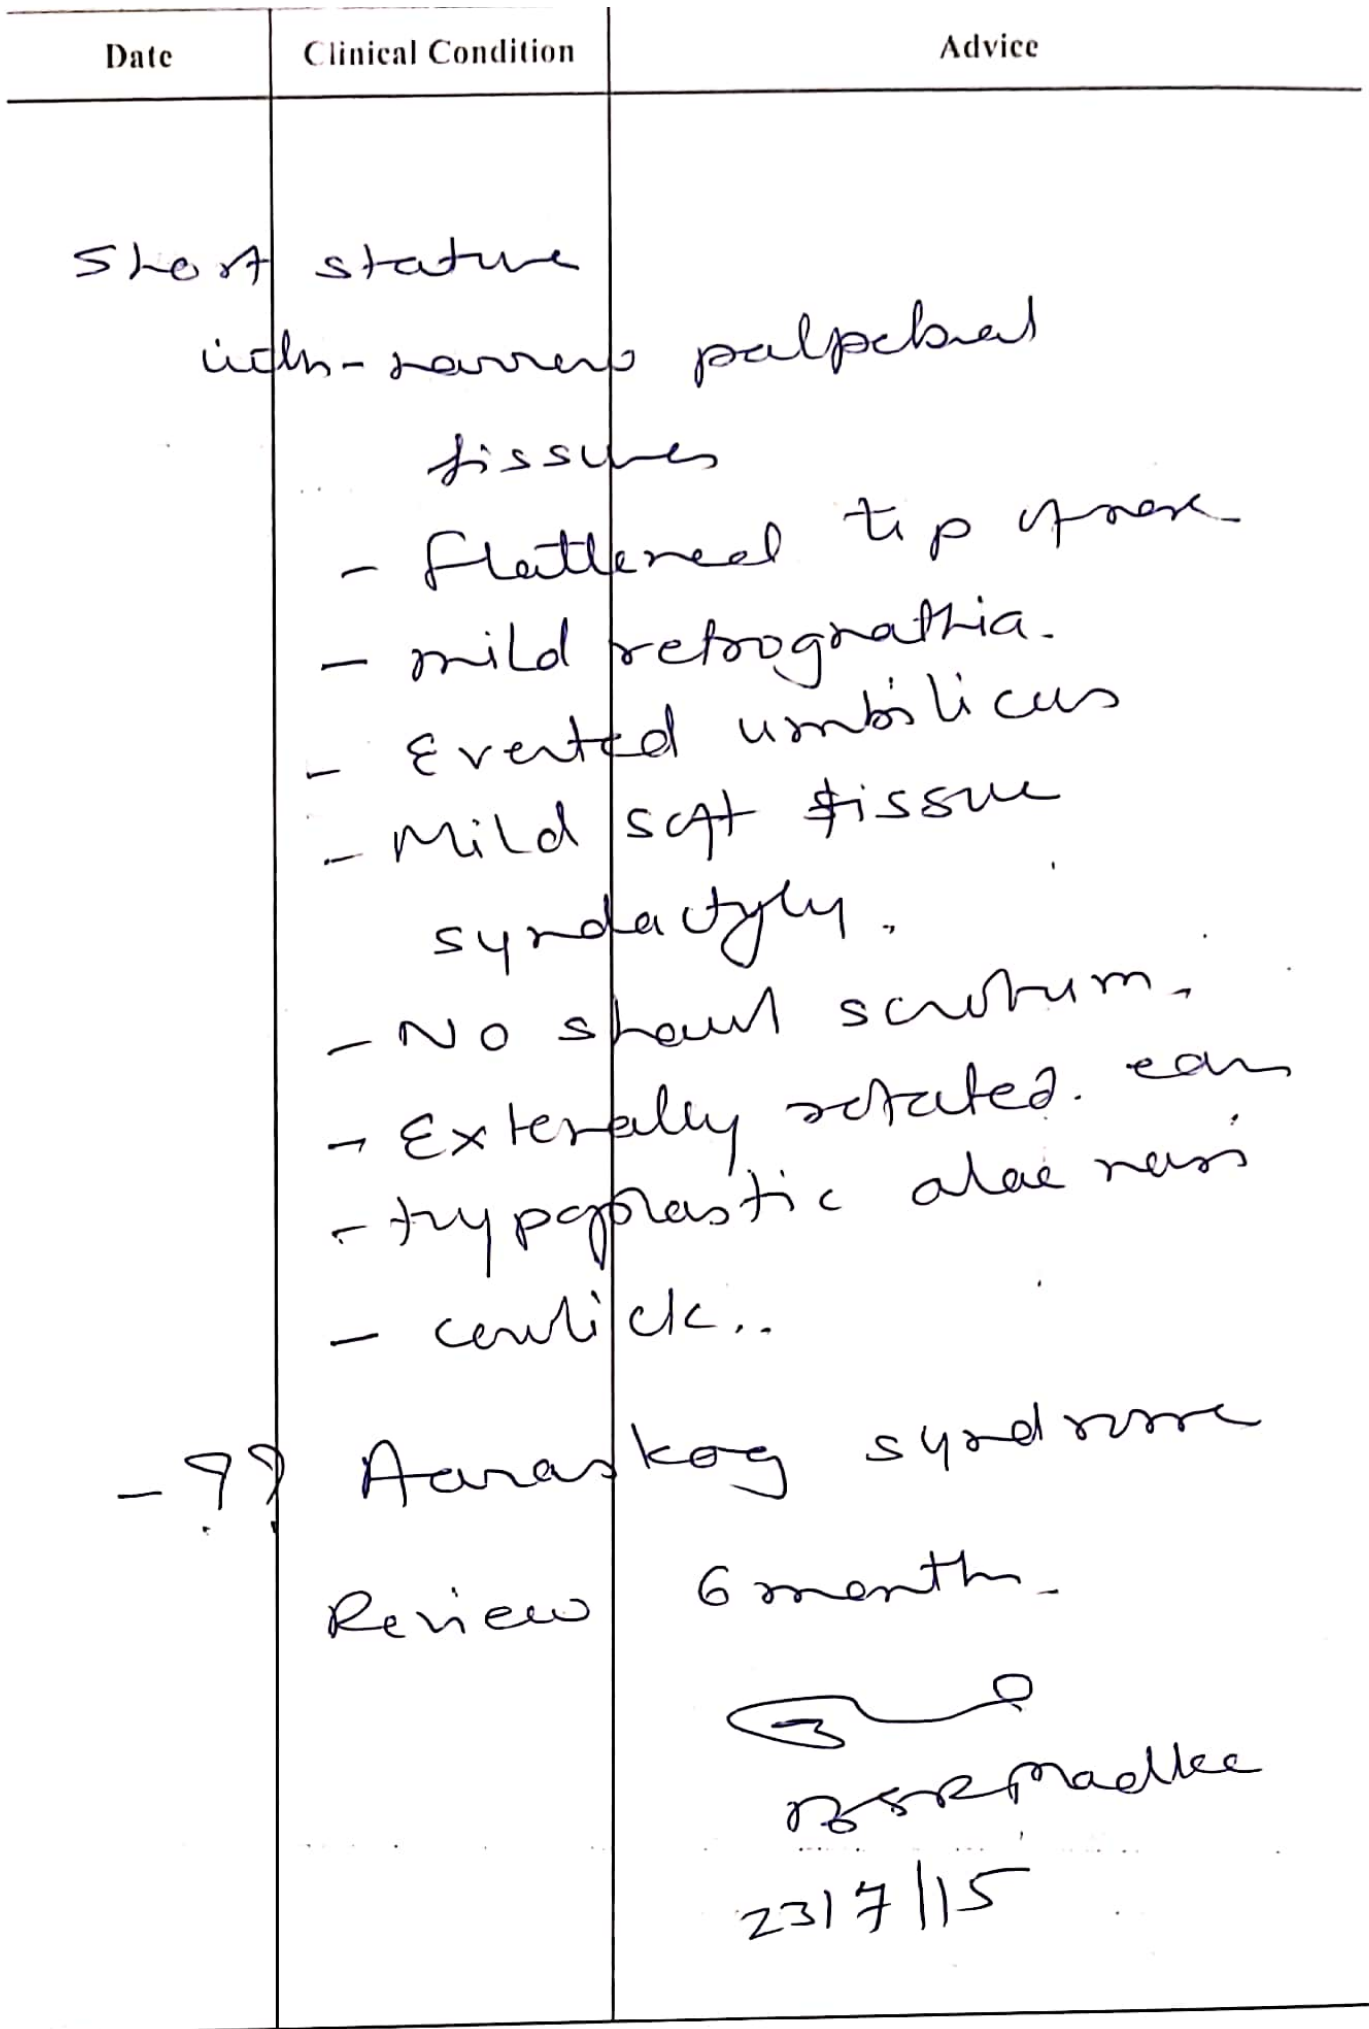 Date Clinical Condition Advice
Short stature
with - narrow palpebral
fissures
- Flattened tip of nose
- mild retrognathia.
- Everted umbilicus
- Mild soft tissue
syndactyly.
- No shawl scrotum.
- Externally rotated. ears
- Hypoplastic alae nasi
- cowlick..
- ?? Aaraskog syndrome
Review 6 months
23/7/15